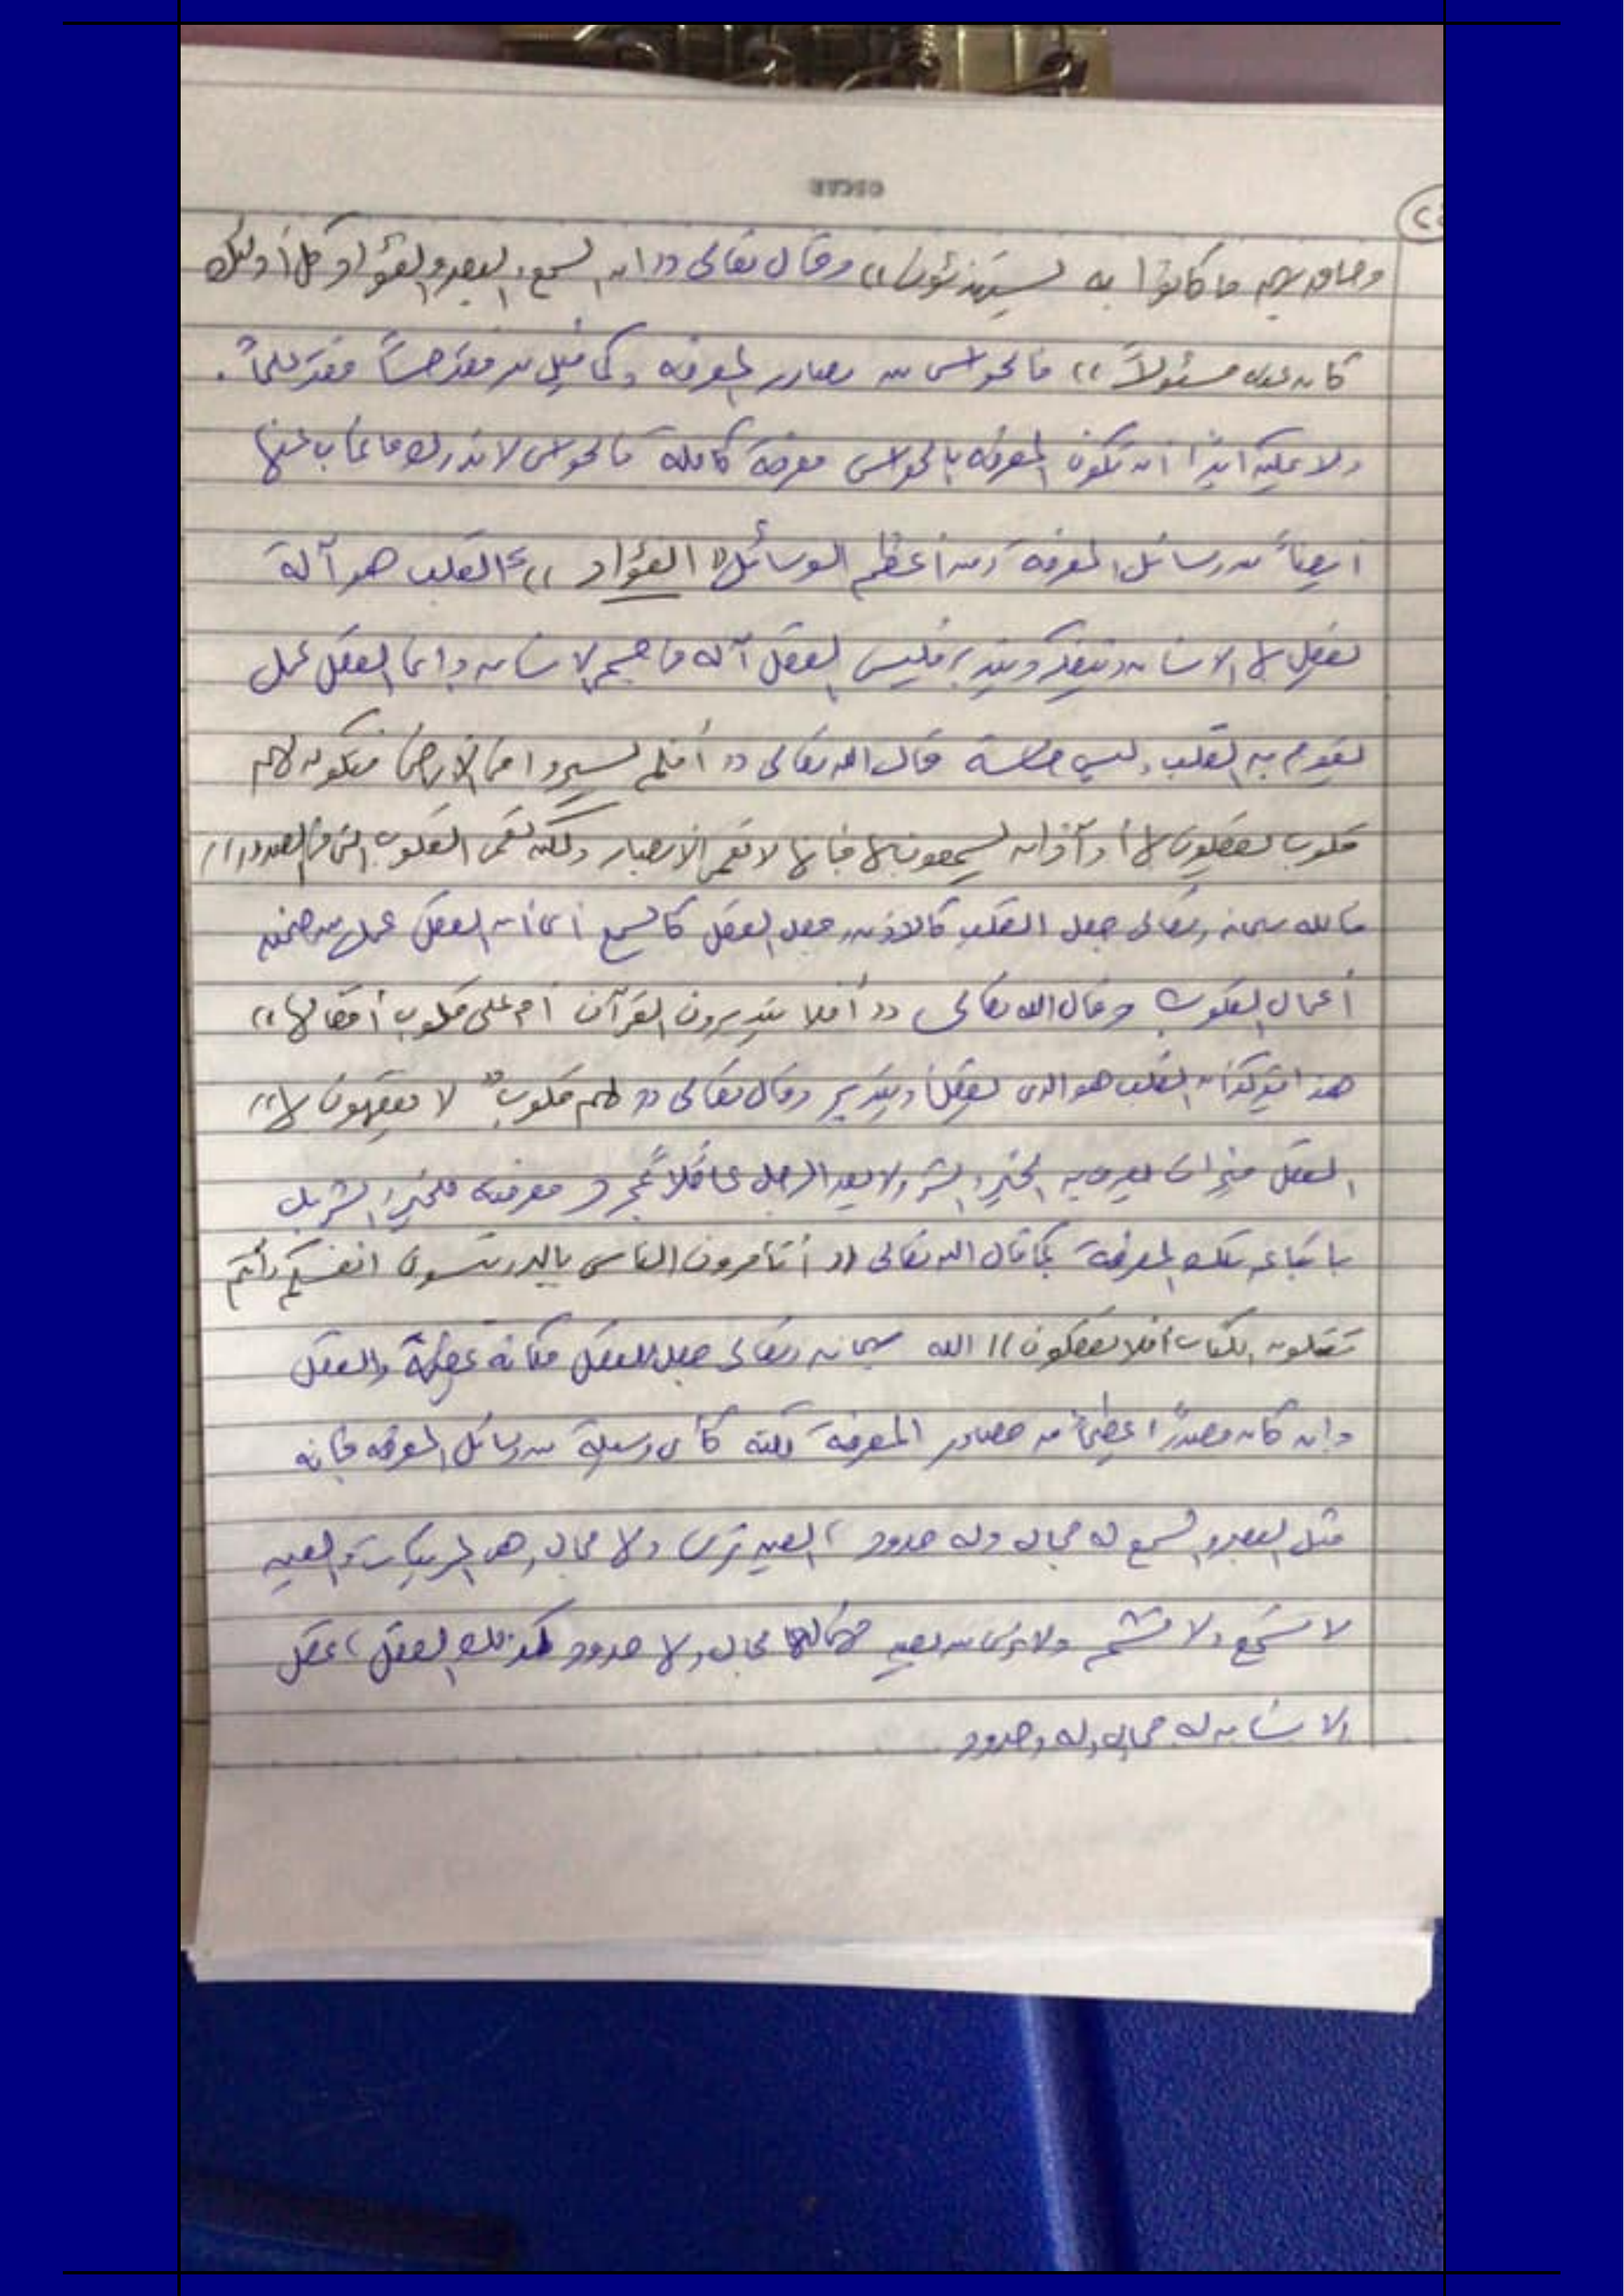 وحاق بهم ما كانوا به يستهزئون)) وقال تعالى ((ان السمع والبصر والفؤاد كل أولئك
كان عنه مسئولاً)) فالحواس من مصادر المعرفه وكما قيل من فقد حساً فقد علماً.
ولا يمكن ابداً ان تكون المعرفه بالحواس معرفة كاملة فالحواس لا تدرك ما غاب عنها
ايضاً من وسائل المعرفة ومن أعظم الوسائل "الفؤاد)) القلب هو آلة
يعقل بها الانسان ويتفكر ويتدبر فليس العقل آله في جسم الانسان وانما العقل عمل
يقوم به القلب وليس حاسة قال الله تعالى ((أفلم يسيروا في الأرض فتكون لهم
قلوب يعقلون بها أو آذان يسمعون بها فإنها لا تعمى الابصار ولكن تعمى القلوب التى في الصدور))
فالله سبحانه وتعالى جعل القلب كالاذن وجعل العقل كالسمع أى أن العقل عمل من ضمن
أعمال القلوب وقال الله تعالى ((أفلا يتدبرون القرآن أم على قلوب أقفالها))
هذا يؤكد أن القلب هو الذى يعقل ويتدبر وقال تعالى ((لهم قلوبٌ لا يفقهون بها))
العقل ميزان يعرف به الخير والشر ولا يعد الرجل عاقلاً بمجرد معرفته للخير والشر بل
باتباعه تلك المعرفة كما قال الله تعالى ((أتأمرون الناس بالبر وتنسون انفسكم وأنتم
تتلون الكتاب أفلا تعقلون)) الله سبحانه وتعالى جعل للعقل مكانة عظيمة والعقل
وان كان مصدراً عظيماً من مصادر المعرفة لكنه كأى وسيلة من وسائل المعرفه فإنه
مثل البصر والسمع له مجال وله حدود، العين ترى ولها مجال وهى المرئيات والعين
لا تسمع ولا تشم ولا ترى من بعيد فإن لها مجال ولها حدود كذلك العقل، عقل
الانسان له مجال وله وحدود